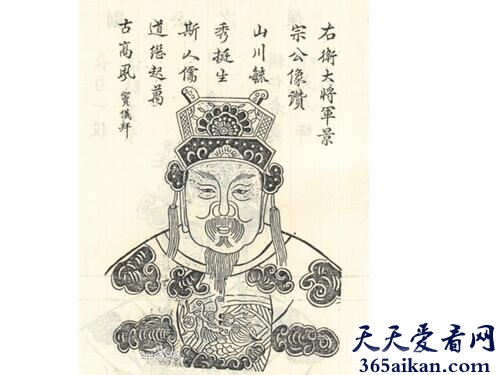 右衛大將軍景
宗公像讚
山川毓
秀挺生
斯人儒
道継起萬
古高風 竇儀拜
天天爱看网
365aikan.com